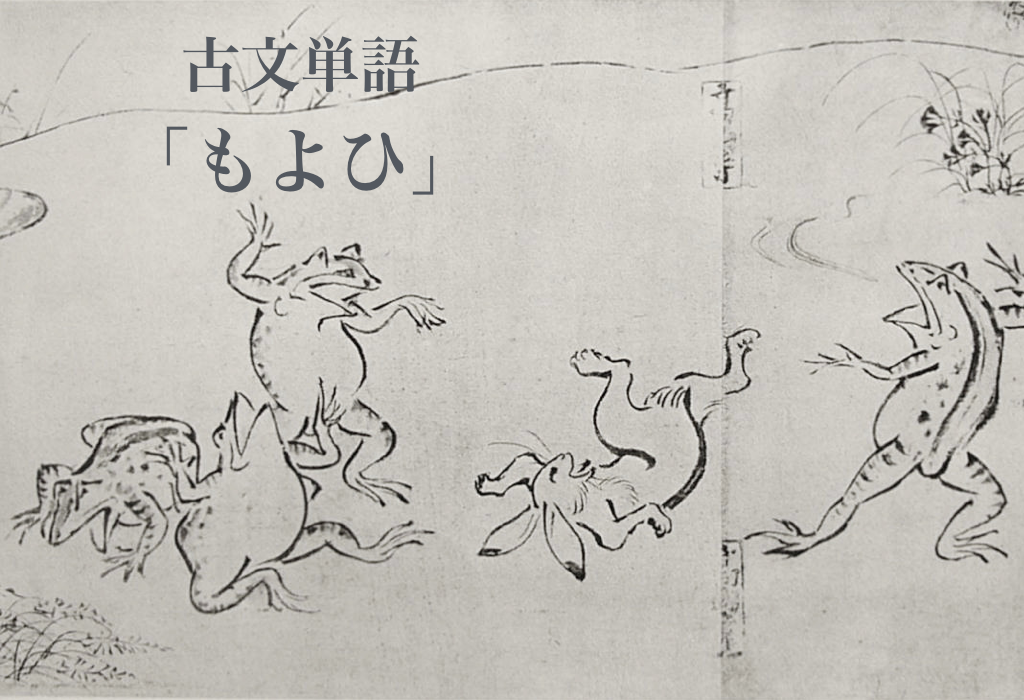 古文単語
「もよひ」